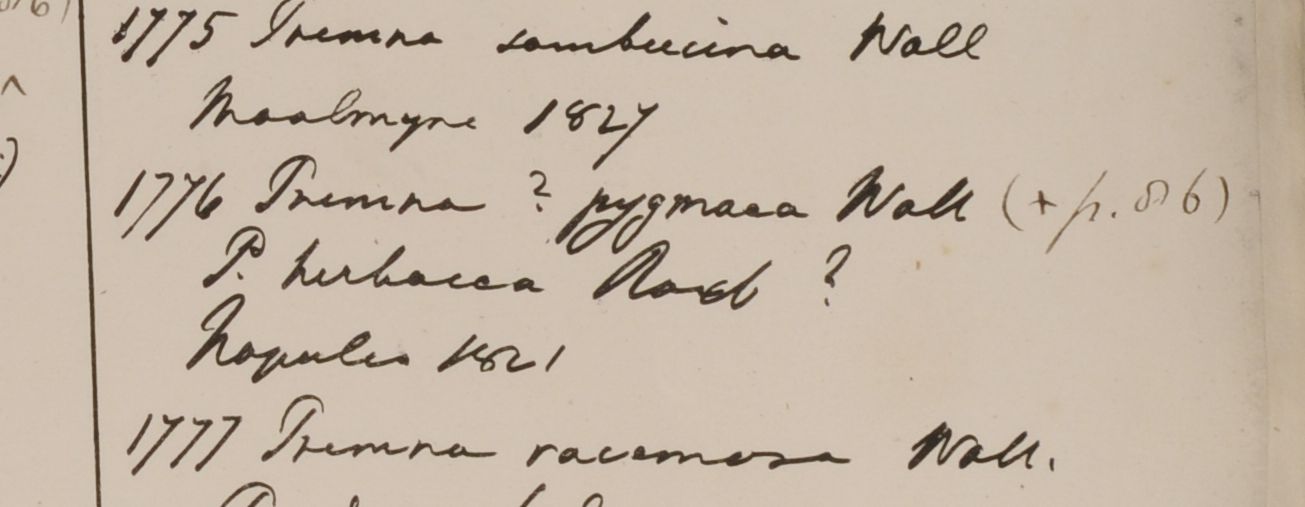 1775 Premna sambucina Wall
Moalmyne 1827
1776 Premna ? pygmaea Wall (+ p. 86)
P. herbacea Roxb ?
Napalia 1821
1777 Premna racemosa Wall.